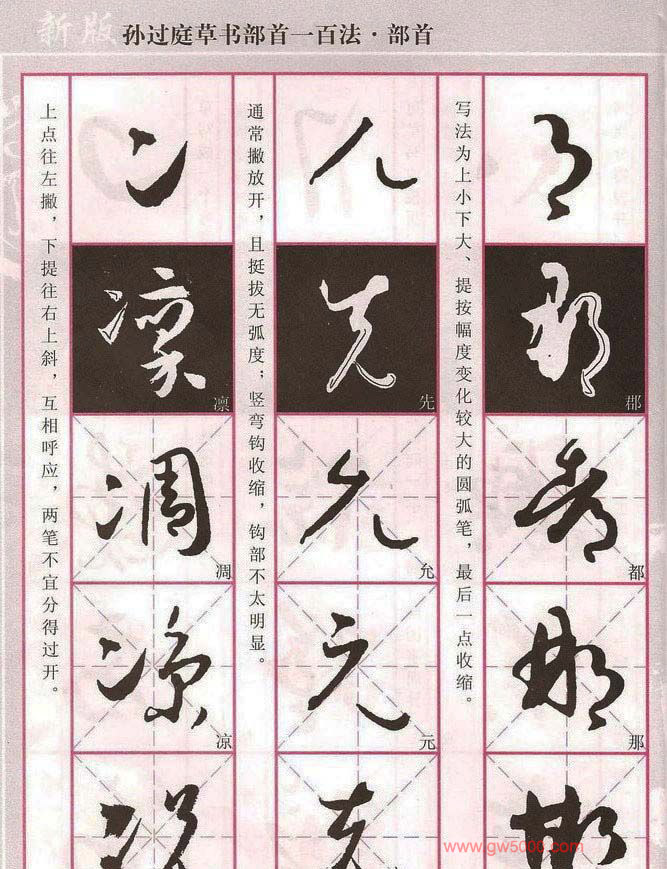 新版 孙过庭草书部首一百法·部首
写法为上小下大、提按幅度变化较大的圆弧笔,最后一点收缩。
郡
都
那
通常撇放开,且挺拔无弧度;竖弯钩收缩,钩部不太明显。
先
允
元
上点往左撇,下提往右上斜,互相呼应,两笔不宜分得过开。
凛
凋
凉
www.gw5000.com